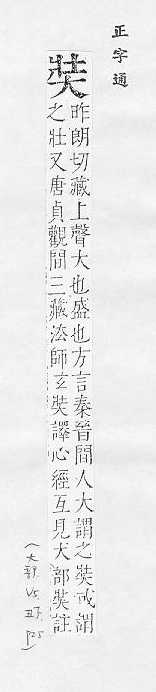 正字通
奘
昨朗切藏上聲大也盛也方言秦晉間人大謂之奘或謂
之壯又唐貞觀間三藏法師玄奘譯心經互見犬部奘註